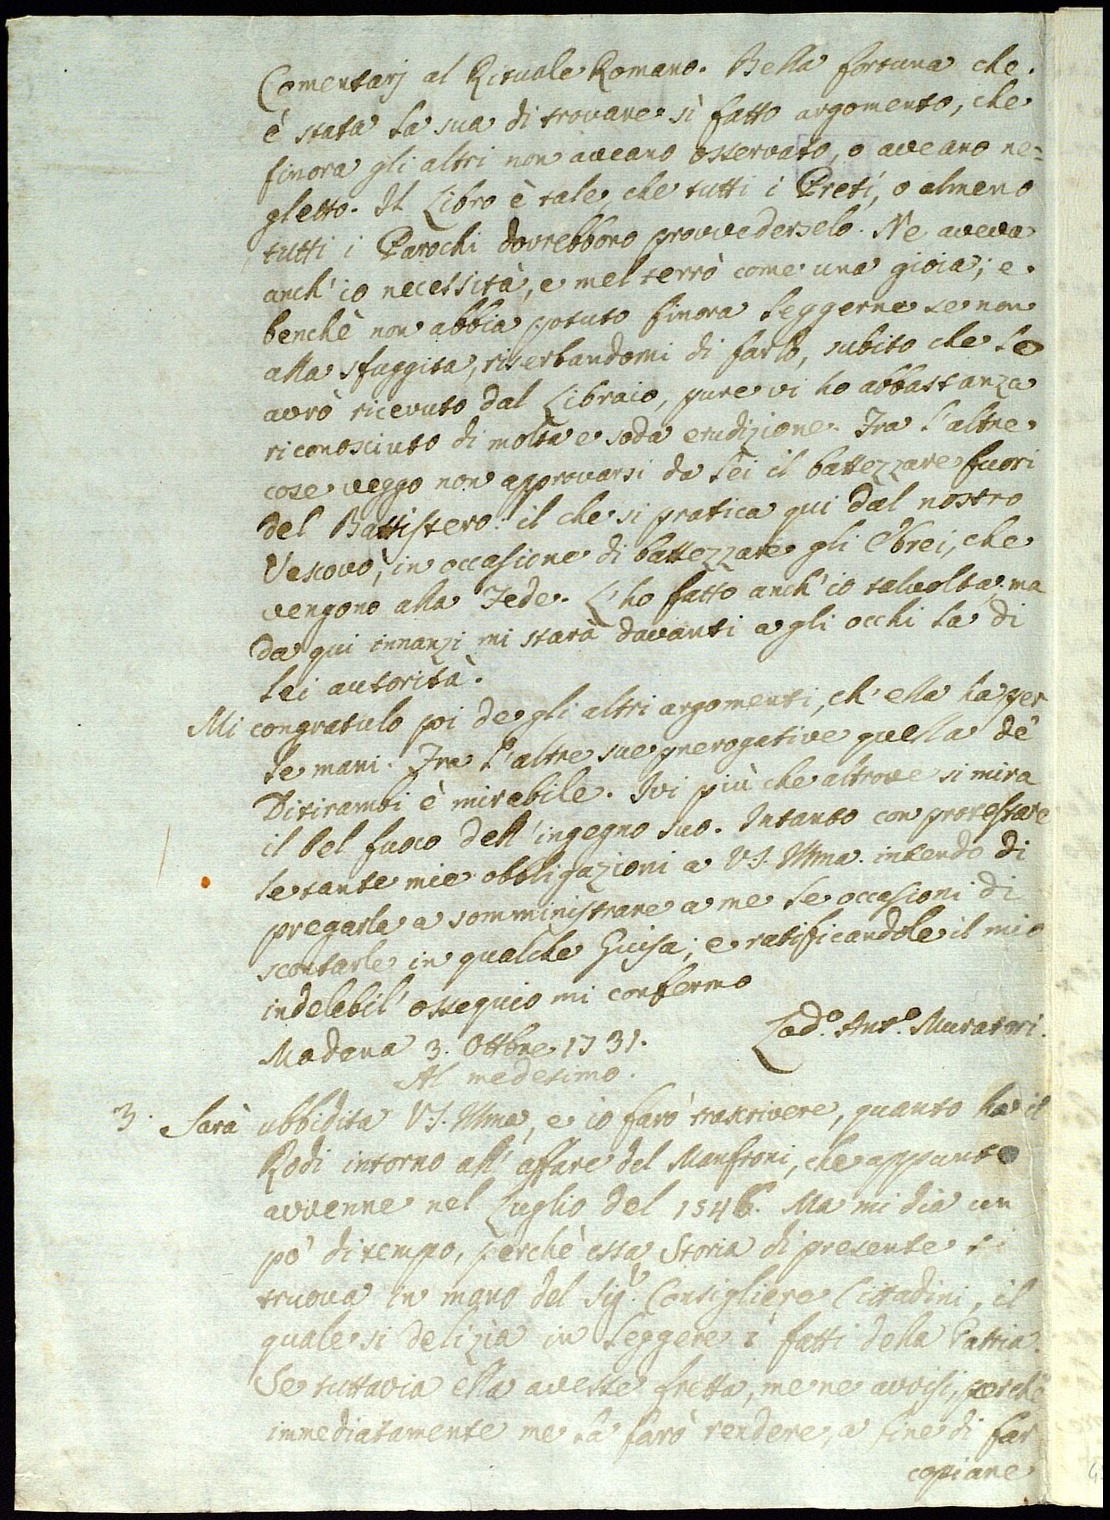 Comentarj al Rituale Romano. Bella fortuna che
è stata la sua di trovare sì fatto argomento, che
finora gli altri non aveano osservato, o aveano ne=
gletto. Il Libro è tale, che tutti i Preti, o almeno
tutti i Parochi dovrebbono provvederselo. Ne aveva
anch' io necessità, e mel terrò come una gioia; e
benchè non abbia potuto finora leggerne se non
alla sfuggita, riserbandomi di farlo, subito che lo
avrò ricevuto dal Libraio, pure vi ho abbastanza
riconosciuto di molta e soda erudizione. Fra l'altre
cose veggo non approvarsi da lei il battezzare fuori
del Battistero: il che si pratica qui dal nostro
Vescovo, in occasione di battezzare gli Ebrei, che
vengono alla Fede. L'ho fatto anch' io talvolta: ma
da qui innanzi mi starà davanti agli occhi la di
lei autorità.
Mi congratulo poi degli altri argomenti, ch' ella ha per
le mani. Fra l'altre sue prerogative quella de'
Ditirambi è mirabile. Ivi più che altrove si mira
il bel fuoco dell' ingegno suo. Intanto con protestare
le tante mie obbligazioni a V.S. Illma. intendo di
pregarla a somministrare a me le occasioni di
scontarle in qualche Guisa; e ratificandole il mio
indelebil' ossequio mi confermo
Modana 3. Ottbre 1731. Lodo. Anto. Muratori.
Al medesimo.
3. Sarà ubbidita V.S. Illma, e io farò trascrivere, quanto ha il
Rodi intorno all' affare del Manfroni, che appunto
avvenne nel Luglio del 1546. Ma mi dia un
pò di tempo, perchè essa Storia di presente si
truova in mano del Sigr. Consigliere Cittadini, il
quale si delizia in leggere i fatti della Patria.
Se tuttavia ella avesse fretta, me ne avvisi, perchè
immediatamente me la farò rendere, a fine di far
copiare